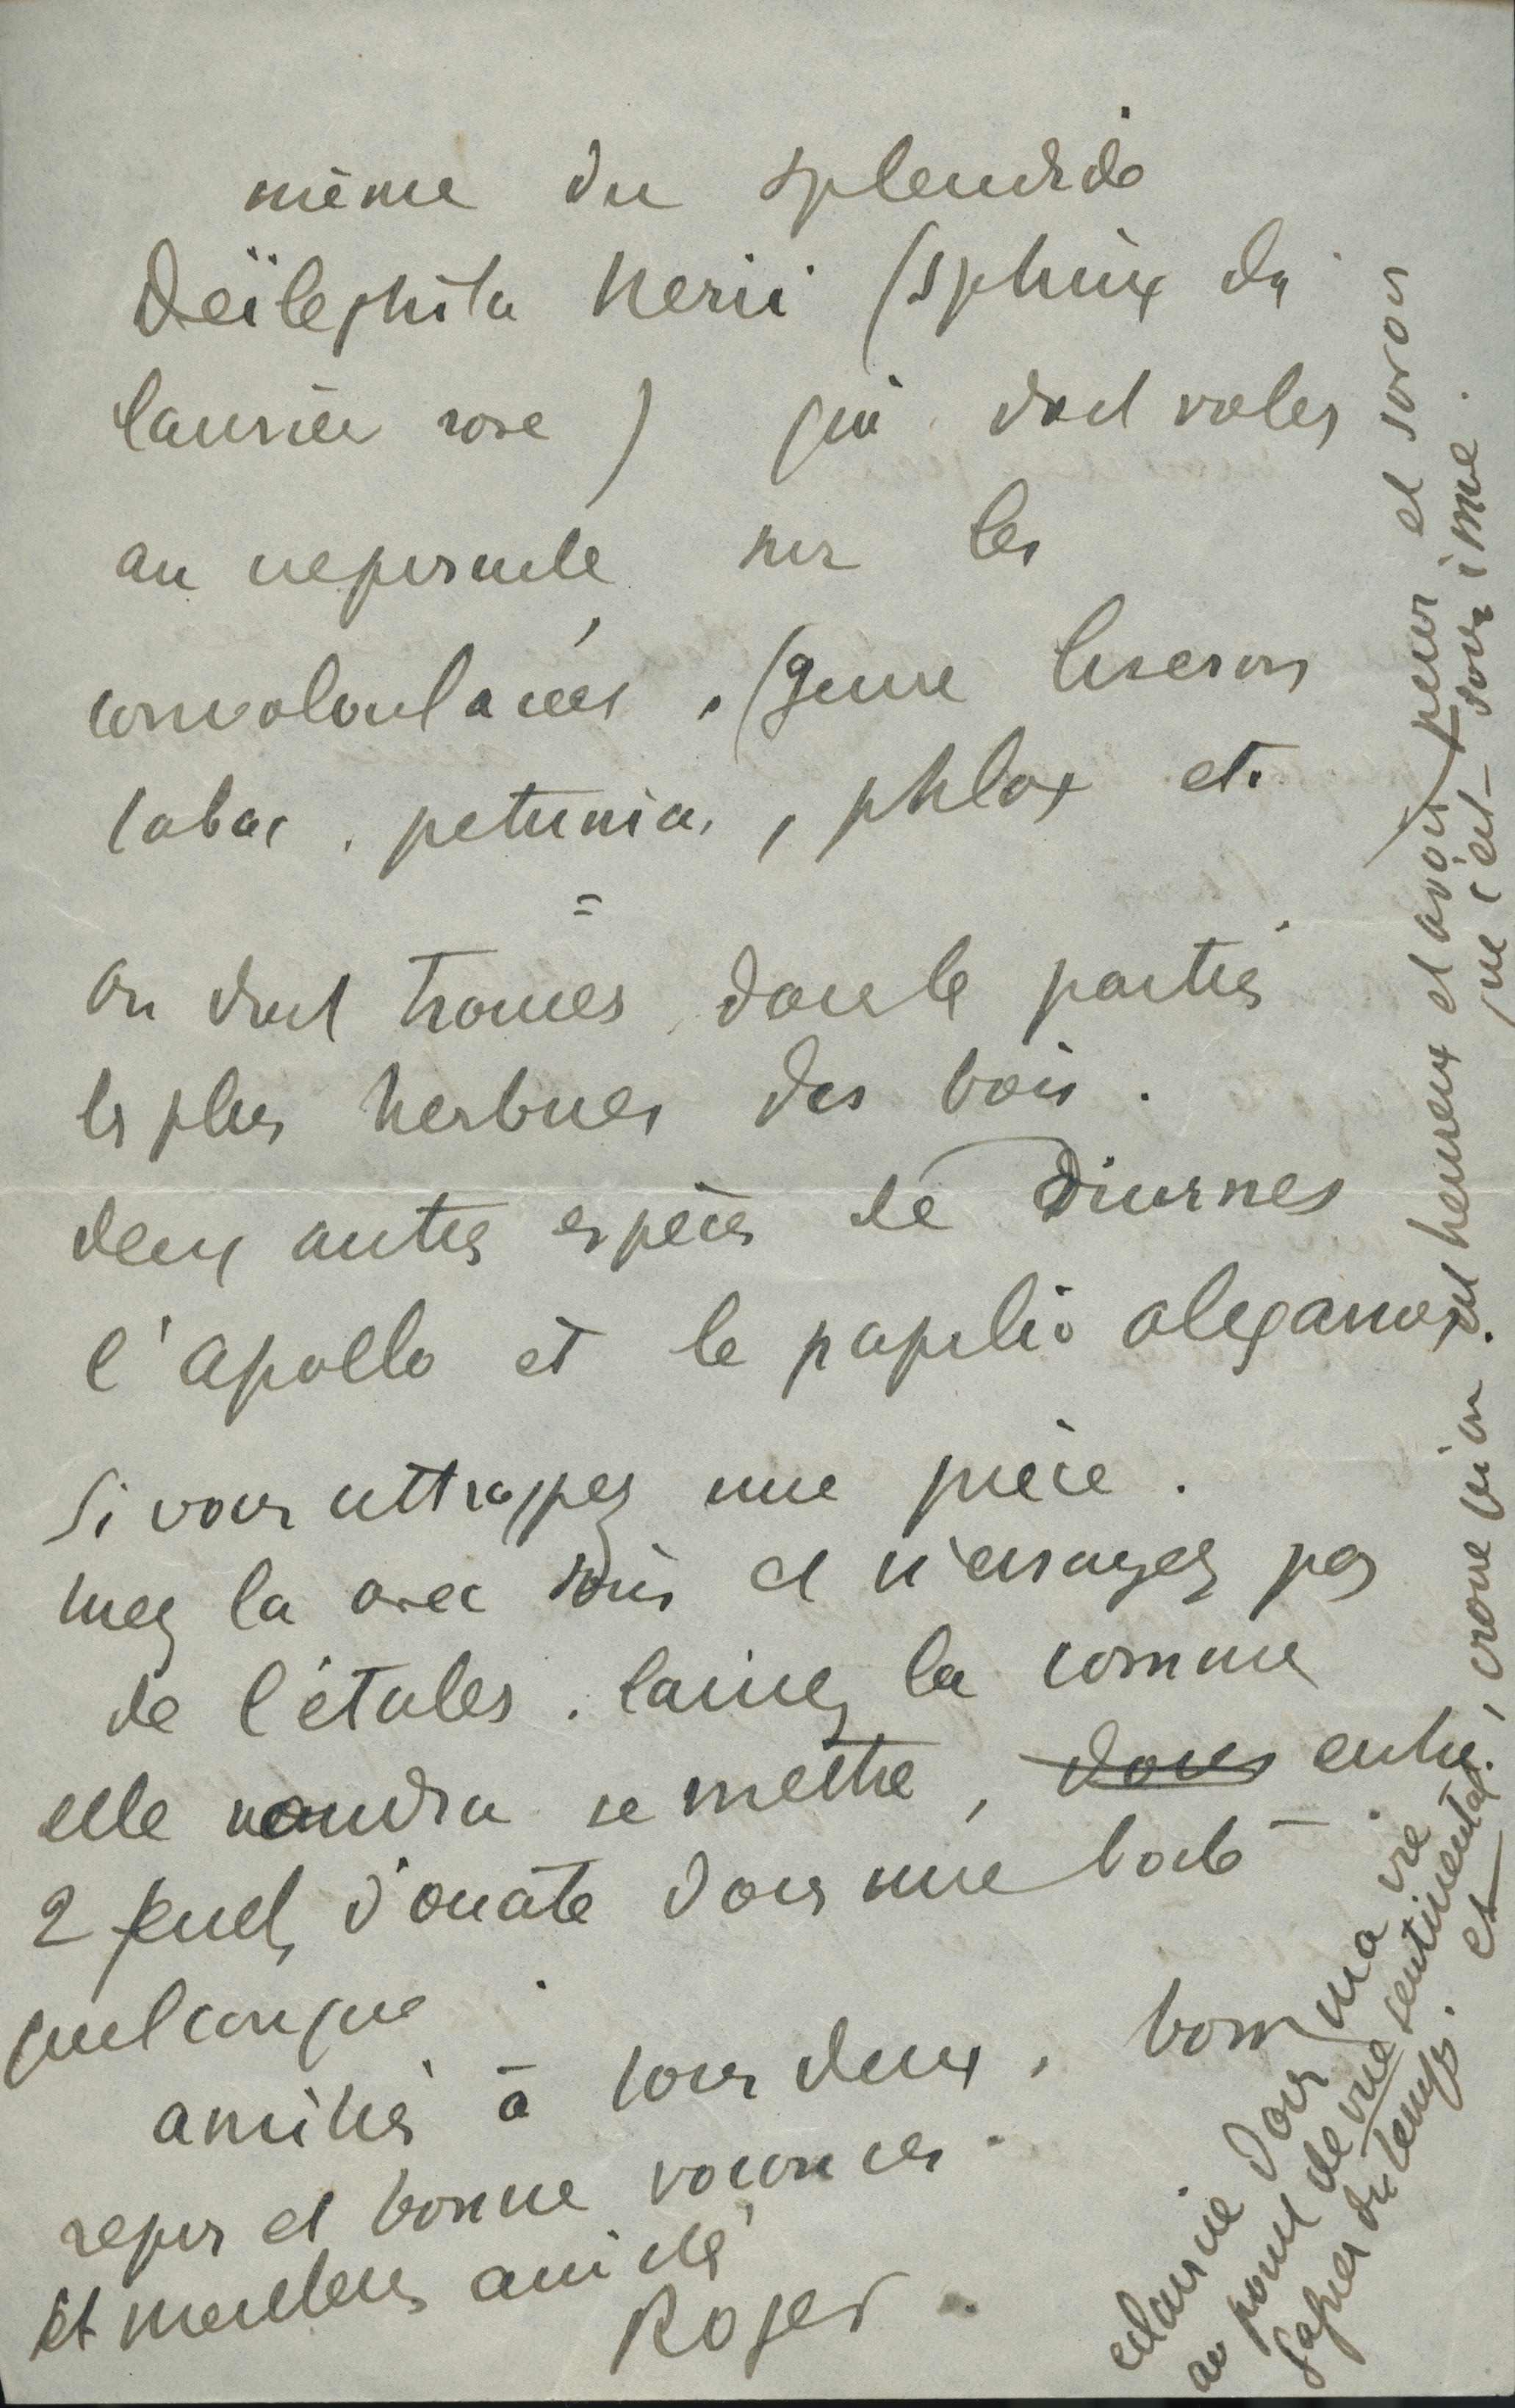 même du splendide
Deïlephila Nerii (sphinx du
laurier rose) qui doit voler
au crépuscule sur les
convolvulacées, (genre liseron
tabac, petunia, phlox etc
=
on doit trouver dans les parties
les plus herbues des bois.
deux autres espèces de Diurnes
l'Apollo et le papilio alexanor
Si vous attrappez une pièce.
tuez la avec soin et n'essayez pas
de l'étaler. laissez la comme
elle voudra se mettre, dans entre
2 feuilles d'ouate dans une boite
quelconque.
amitiés à tous deux, bon
repos et bonne vacances.
et meilleure amitié
Roger.
eclaircie dans ma vie
au point de vue sentimental.
Gagner du temps. et
, crois bien. est heureux et avoir peur et savoir
que c'est